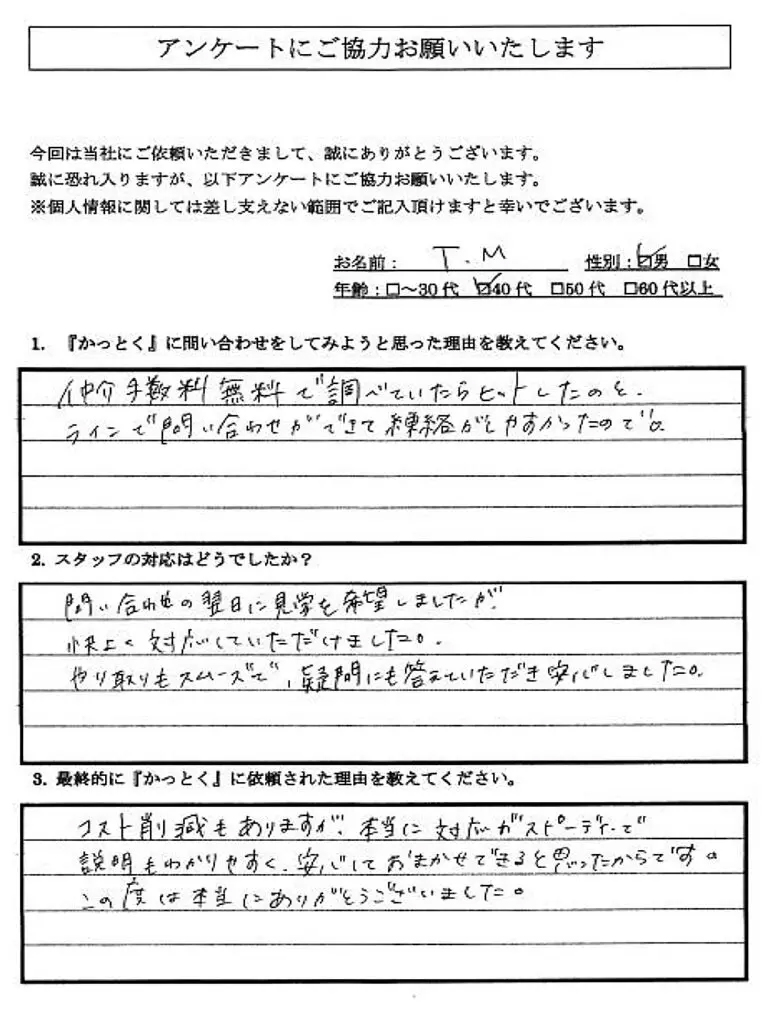 アンケートにご協力お願いいたします
今回は当社にご依頼いただきまして、誠にありがとうございます。
誠に恐れ入りますが、以下アンケートにご協力お願いいたします。
※個人情報に関しては差し支えない範囲でご記入頂けますと幸いでございます。
お名前： T.M 性別：☑男 □女
年齢：□～30代 ☑40代 □50代 □60代以上
1. 『かっとく』に問い合わせをしてみようと思った理由を教えてください。
仲介手数料無料で調べていたらヒットしたのと、
ラインで問い合わせができて練絡がしやすかったので。
2. スタッフの対応はどうでしたか？
問い合わせの翌日に見学を希望しましたが、
快よく対応していただけました。
やり取りもスムーズで、疑問にも答えていただき安心しました。
3. 最終的に『かっとく』に依頼された理由を教えてください。
コスト削減もありますが、本当に対応がスピーディーで
説明もわかりやすく、安心しておまかせできると思ったからです。
この度は本当にありがとうございました。